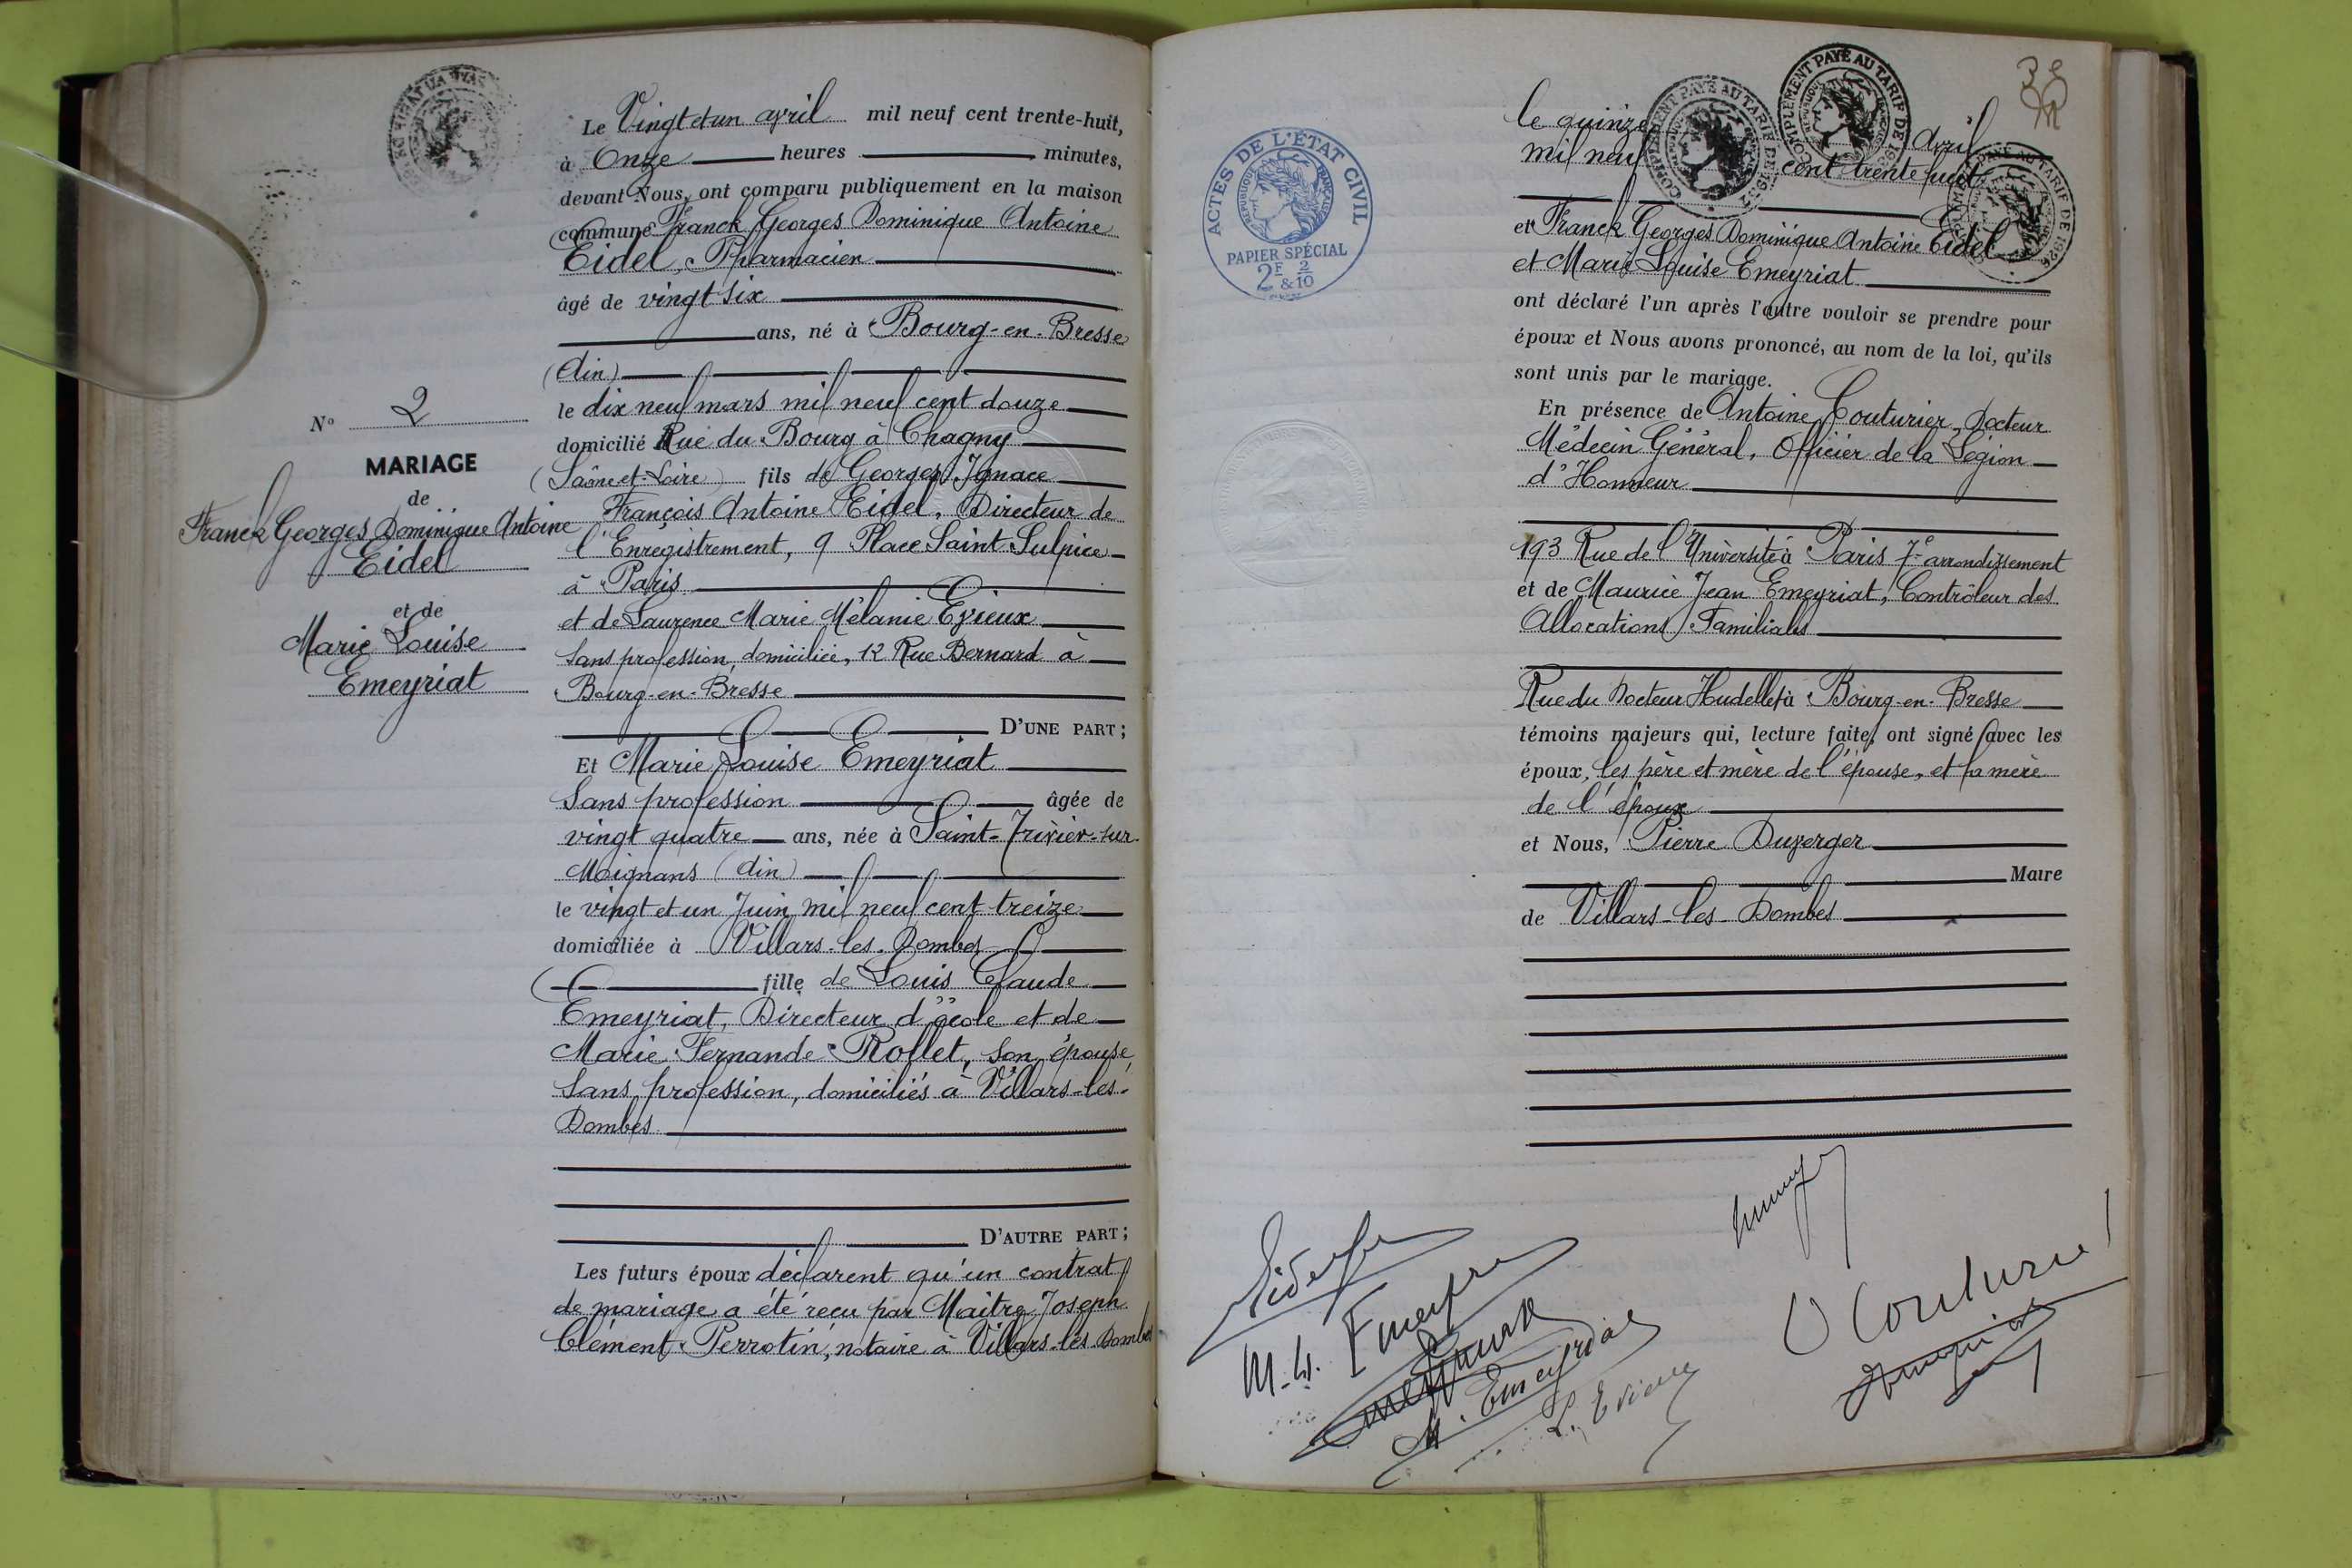 Le Vingt et un avril mil neuf cent trente-huit,
à Onze heures minutes,
devant Nous, ont comparu publiquement en la maison
commune Franck Georges Dominique Antoine
Eidel, Pharmacien
âgé de vingt six
ans, né à Bourg-en-Bresse
(Ain)
le dix neuf mars mil neuf cent douze
domicilié Rue du Bourg à Chagny
(Saône et-Loire) fils de Georges Ignace
François Antoine Eidel, Directeur de
l'Enregistrement, 9 Place Saint Sulpice
à Paris
et de Laurence Marie Mélanie Evieux
Sans profession, domiciliée, 12 Rue Bernard à
Bourg-en-Bresse
D'UNE PART;
Et Marie Louise Emeyriat
Sans profession âgée de
vingt quatre ans, née à Saint-Trivier-sur
Moignans (Ain)
le vingt et un Juin mil neuf cent treize
domiciliée à Villars-les-Dombes
( fille de Louis Claude
Emeyriat, Directeur d'école et de
Marie Fernande Rollet, son épouse
Sans profession, domiciliés à Villars-les-
Dombes
D'AUTRE PART;
Les futurs époux déclarent qu'un contrat
de mariage a été reçu par Maitre Joseph
Clément Perrotin, notaire à Villars-les-Dombes
N° 2
MARIAGE
de
Franck Georges Dominique Antoine
Eidel
et de
Marie Louise
Emeyriat
ACTES DE L'ÉTAT CIVIL
RÉPUBLIQUE FRANÇAISE
PAPIER SPÉCIAL
2F & 2/10
COMPLÉMENT PAYÉ AU TARIF DE
COMPLÉMENT PAYÉ AU TARIF DE
PAYÉ AU TARIF DE 1926
le quinze avril
mil neuf cent trente huit
et Franck Georges Dominique Antoine Eidel
et Marie Louise Emeyriat
ont déclaré l'un après l'autre vouloir se prendre pour
époux et Nous avons prononcé, au nom de la loi, qu'ils
sont unis par le mariage.
En présence de Antoine Couturier, Docteur
Médecin Général, Officier de la Légion
d'Honneur
193 Rue de l'Université à Paris 7e arrondissement
et de Maurice Jean Emeyriat, Contrôleur des
Allocations Familiales
Rue du Docteur Hudellet à Bourg-en-Bresse
témoins majeurs qui, lecture faite, ont signé avec les
époux, les père et mère de l'épouse, et la mère
de l'époux
et Nous, Pierre Duverger
Maire
de Villars-les-Dombes
M. Emeyriat
L. Evieux
Couturier